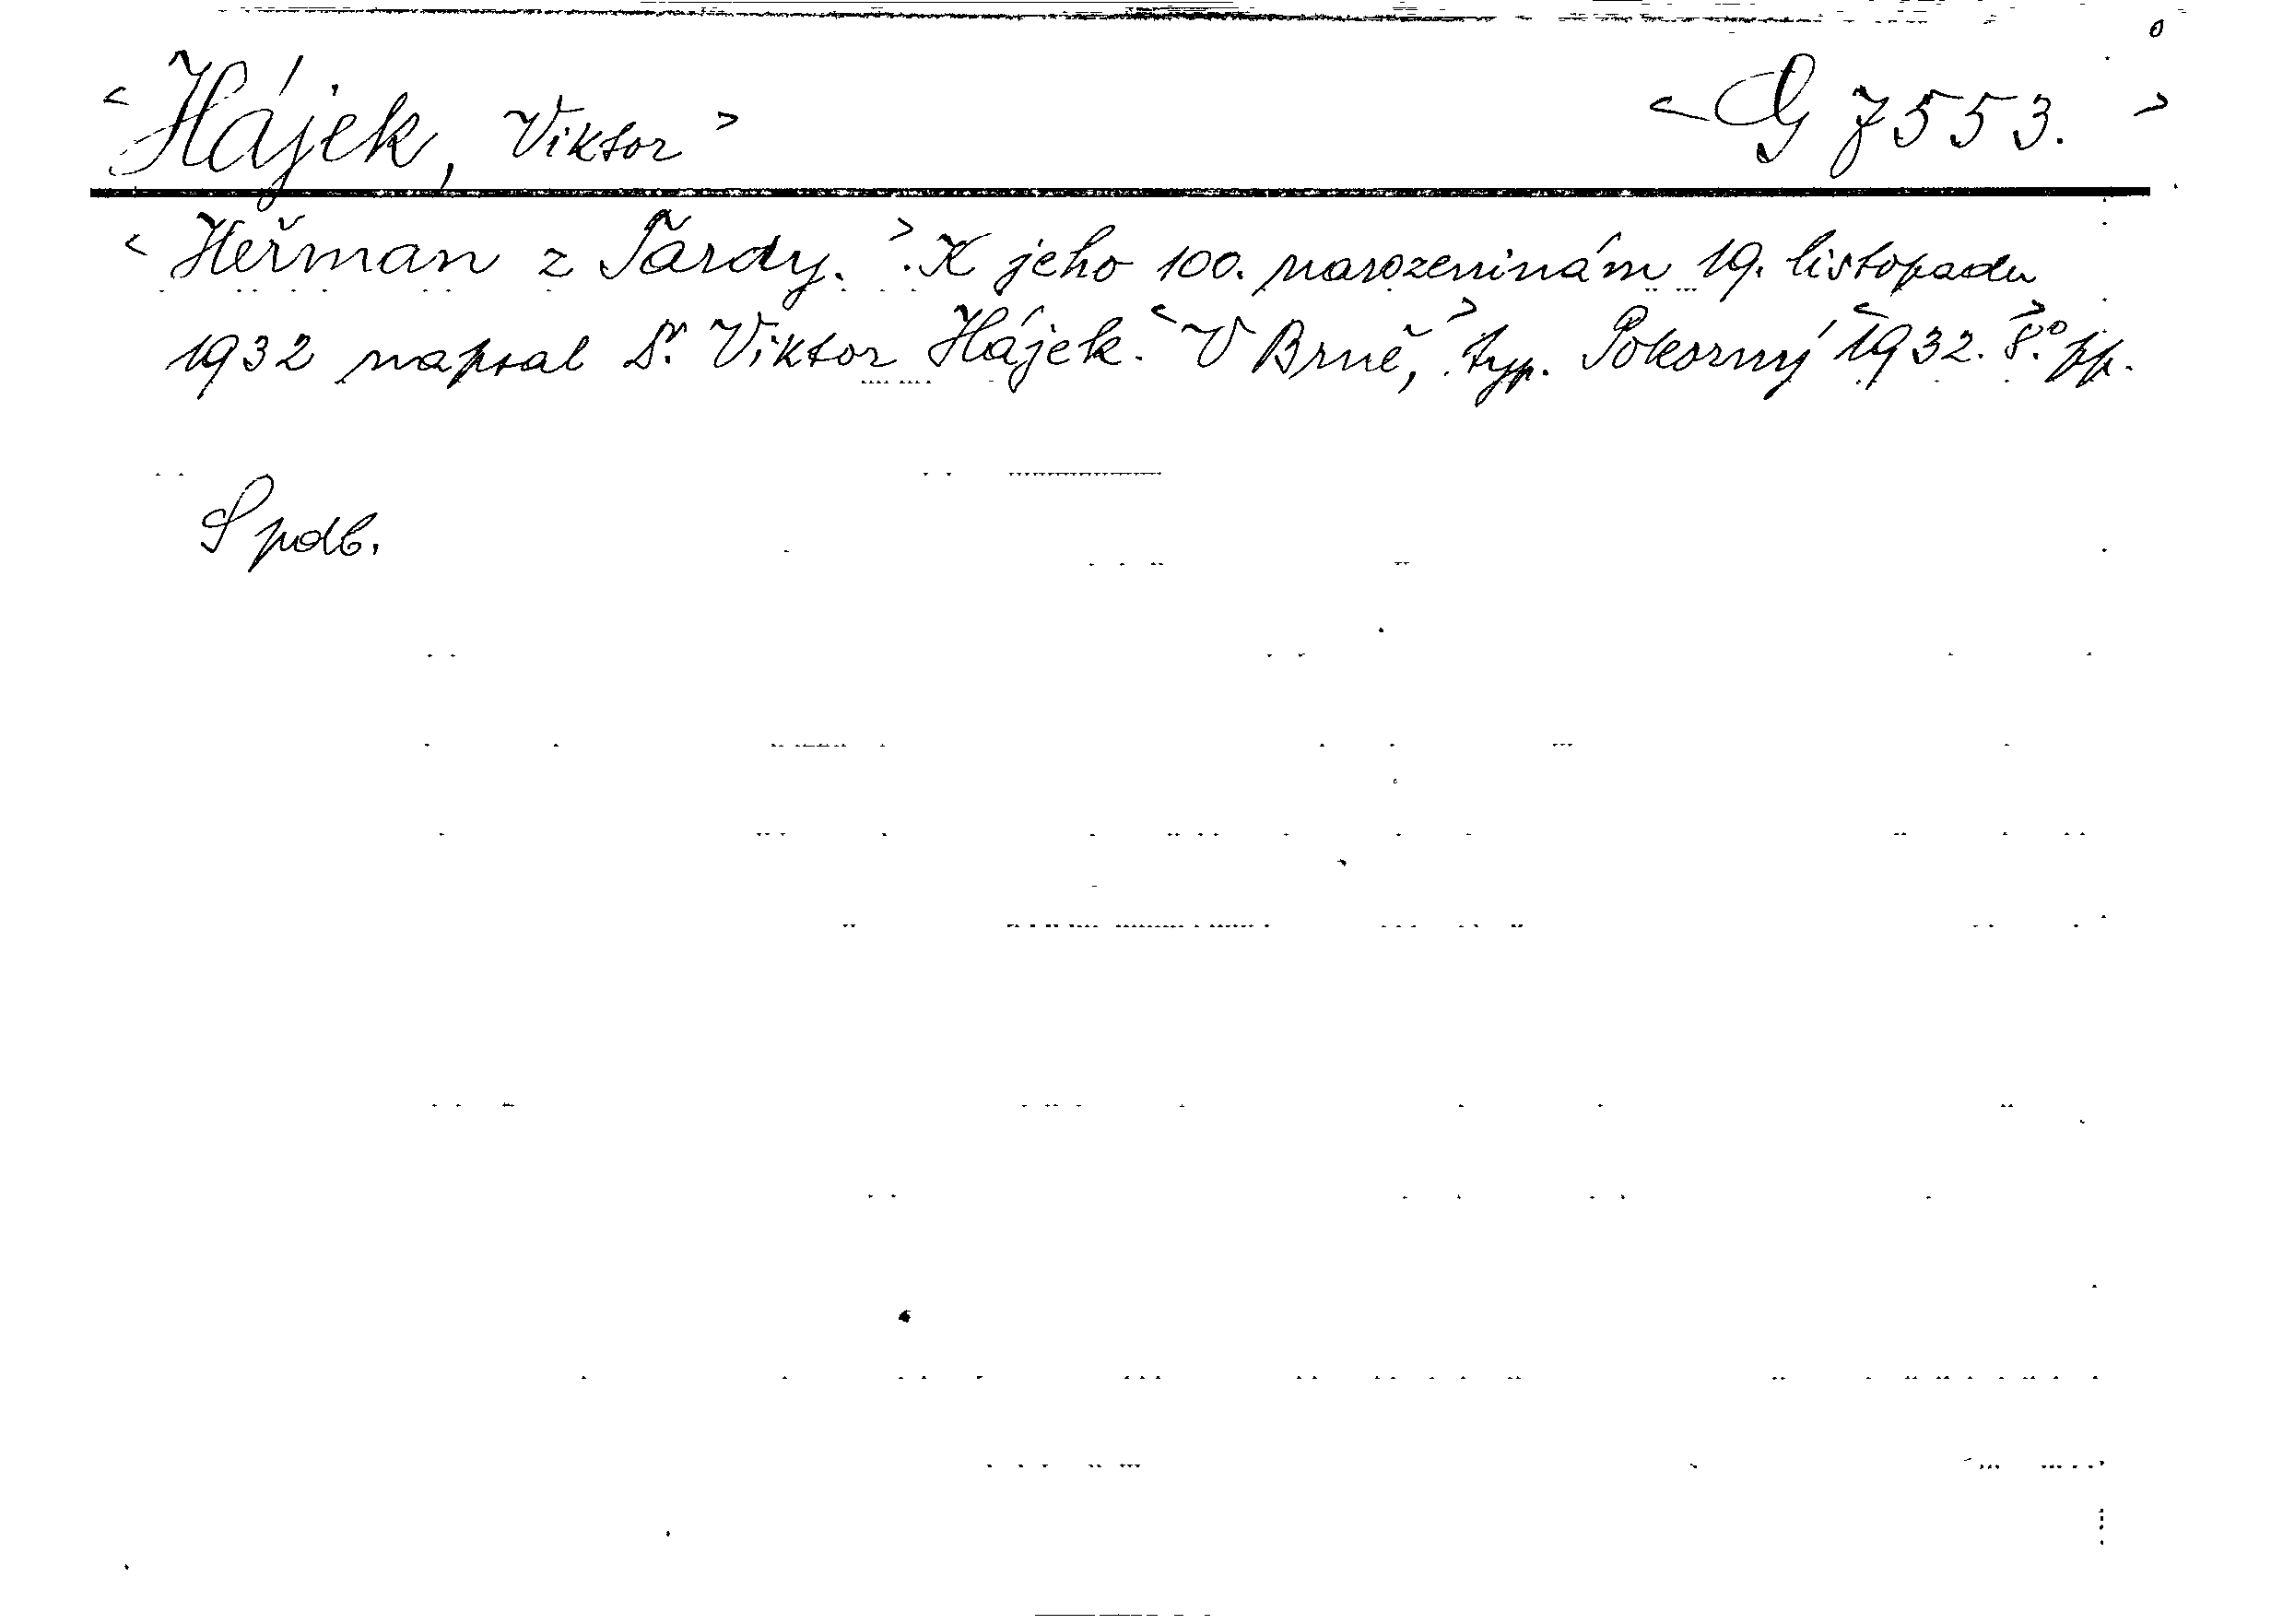 <Hájek, Viktor> <G 7553.>
<Heřman z Tardy.> K jeho 100. narozeninám 19. listopadu
1932 napsal Dr. Viktor Hájek. <V Brně,> typ. Pokorný <1932.> 8.° pp.
Spdb.